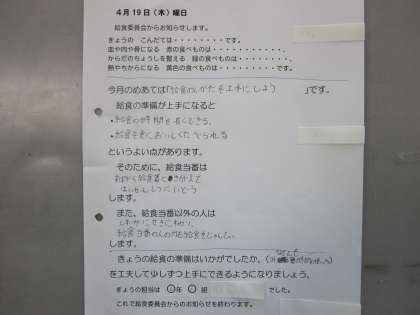 4月19日(木)曜日
給食委員会からお知らせします。
きょうの こんだては・・・・・・・・・です。
血や肉や骨になる 赤の食べものは・・・・・・・・・・・、
からだのちょうしを整える 緑の食べものは・・・・・・・・・・、
熱やちからになる 黄色の食べものは・・・・・・・・・・です。
今月のめあては「給食のしかたを上手にしよう 」です。
給食の準備が上手になると
・給食の時間を長くできる。
・給食を おいしくたべられる
というよい点があります。
そのために、給食当番は
すばやく給食着にきがえて
はいぜんしつにいこう
します。
また、給食当番以外の人は
しずかにせきにすわり、
給食当番の人の
します。
きょうの給食の準備はいかがでしたか。(
を工夫して少しずつ上手にできるようになりましょう。
きょうの担当は 年 組 でした。
これで給食委員会からのお知らせを終わります。